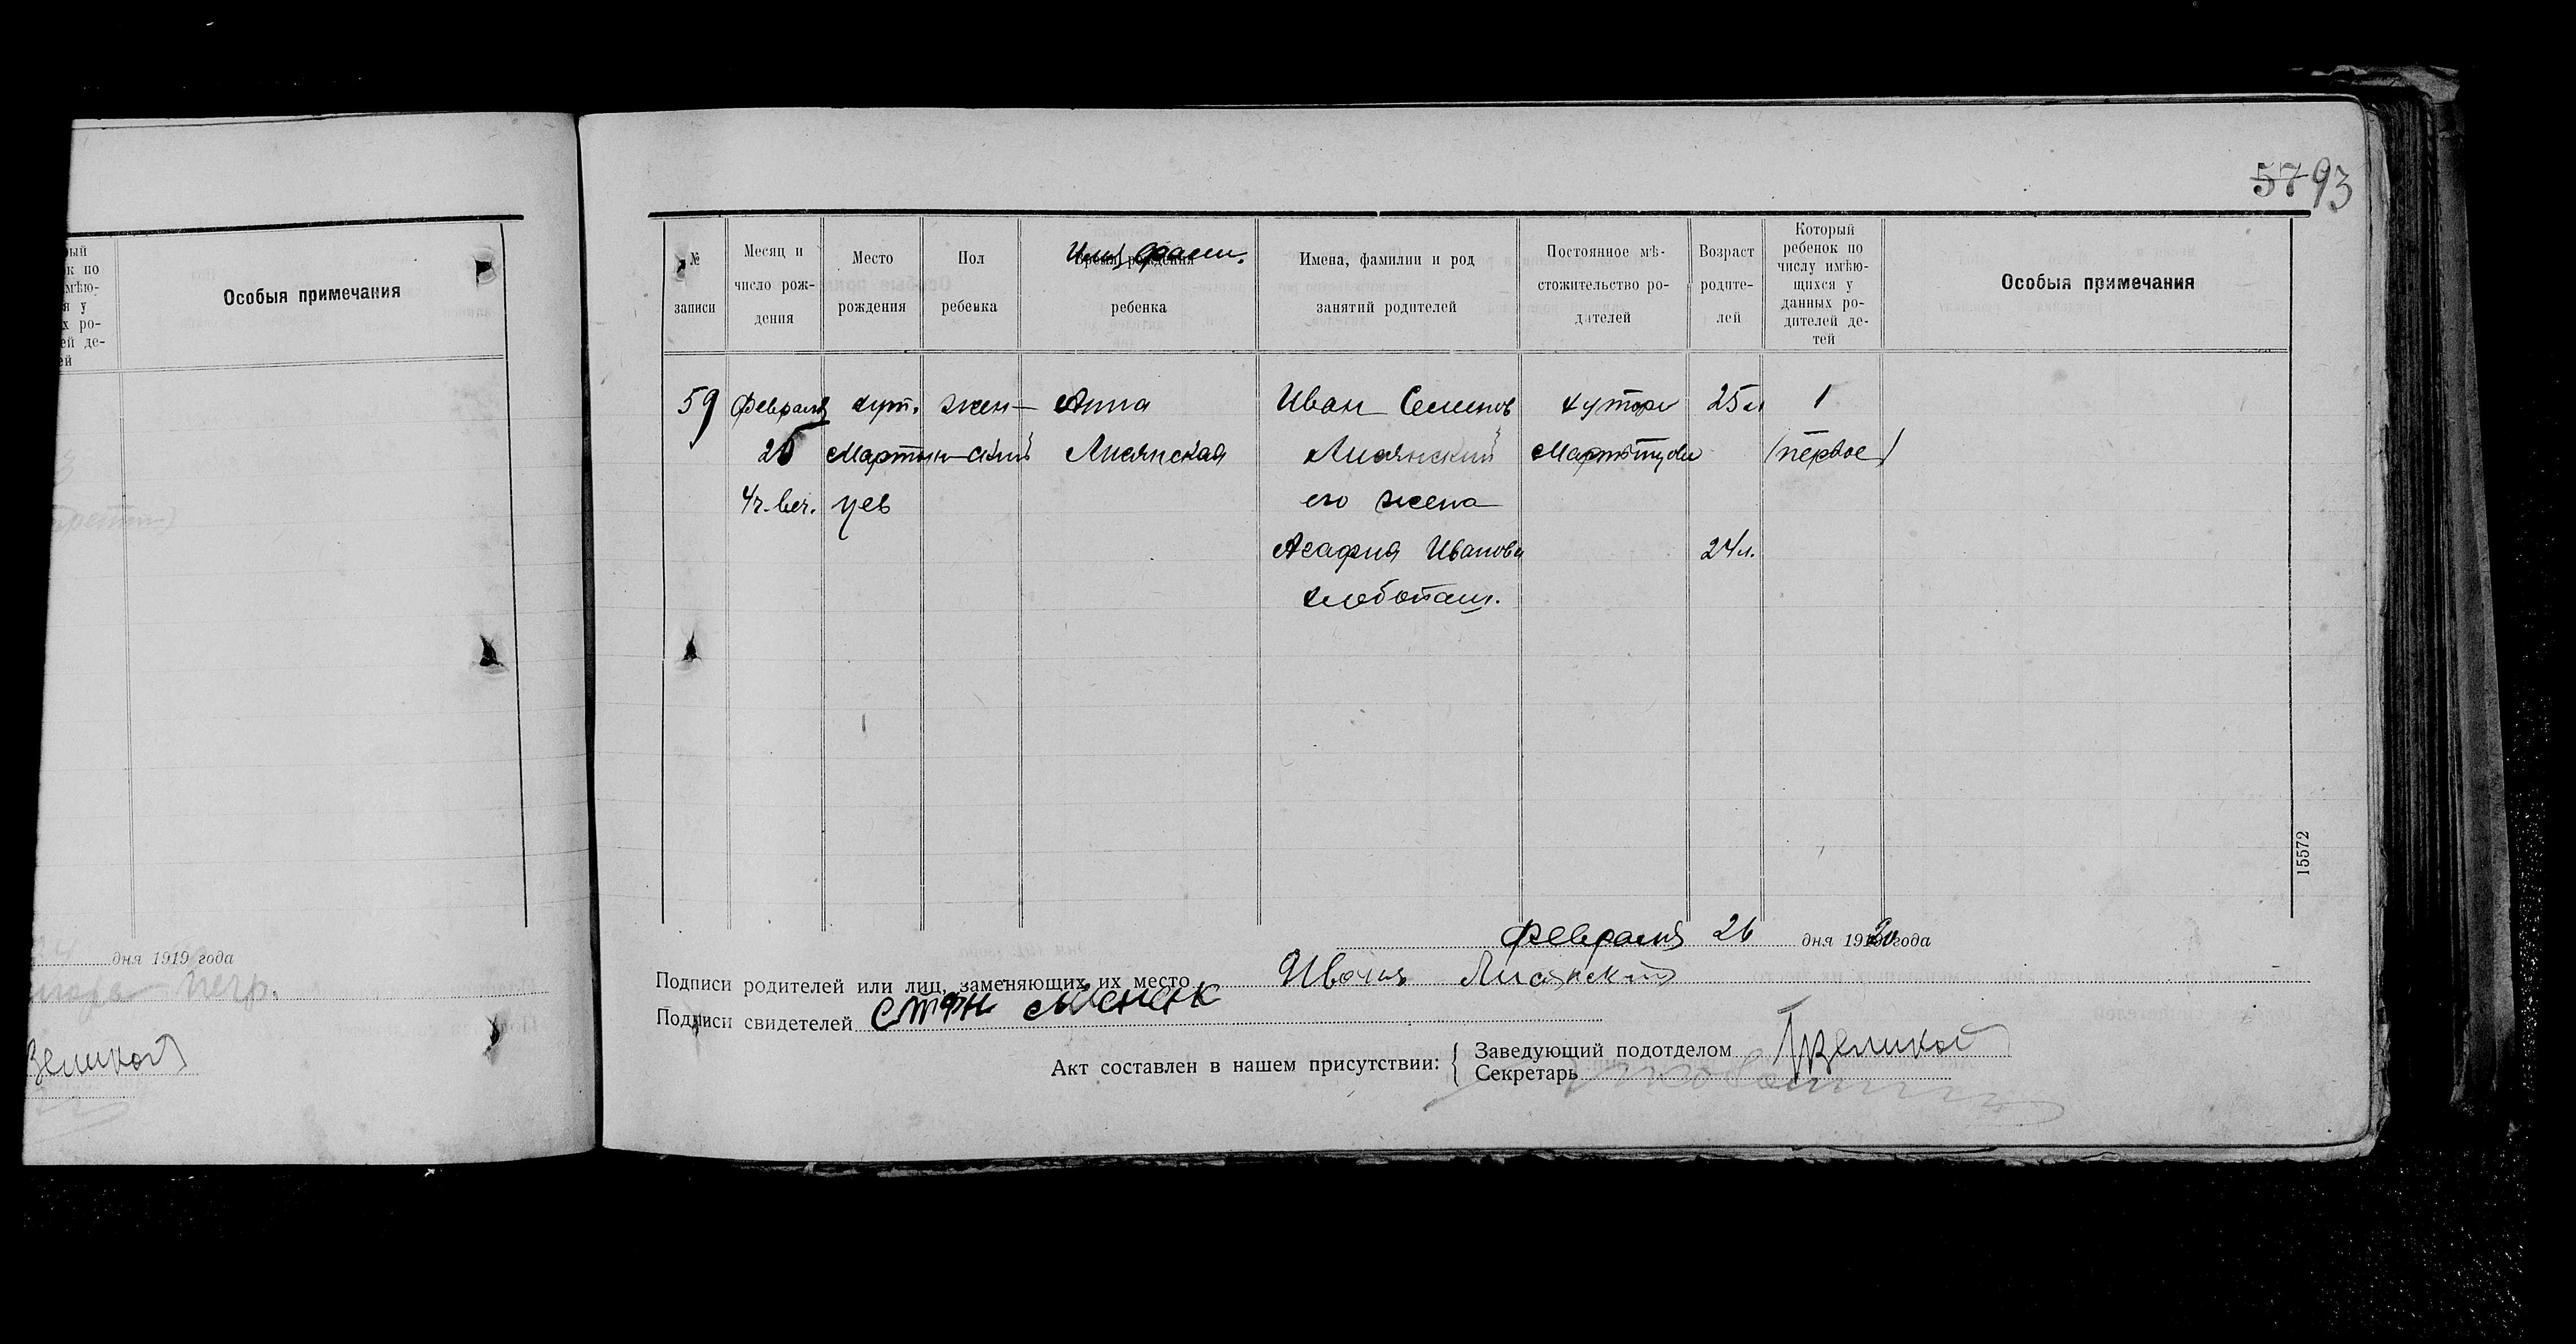 57 93
ый
к по
мѣю-
я у
х ро-
ей де-
ей
Особыя примечания
дня 1919 года
Великой
№
записи
Месяц и
число рож-
дения
Место
рождения
Пол
ребенка
Имя, фами.
Время рождения
ребенка
Имена, фамилии и род
занятий родителей
Постоянное мѣ-
стожительство ро-
дителей
Возраст
родите-
лей
Который
ребенок по
числу имѣю-
щихся у
данных ро-
дителей де-
тей
Особыя примечания
59
Февраля
25
4 ч. веч.
хут.
Мартын
цев
жен-
ский
Анна
Лисянская
Иван Семенов
Лисянский
его жена
Агафия Иванова
хлебопаш.
хутора
25 л
24 л.
1
(первое)
15572
Февраля 26 дня 1920 года
Подписи родителей или лиц, заменяющих их место Иванъ Лисянский
Подписи свидетелей
Акт составлен в нашем присутствии:
Заведующий подотделом Великой
Секретарь